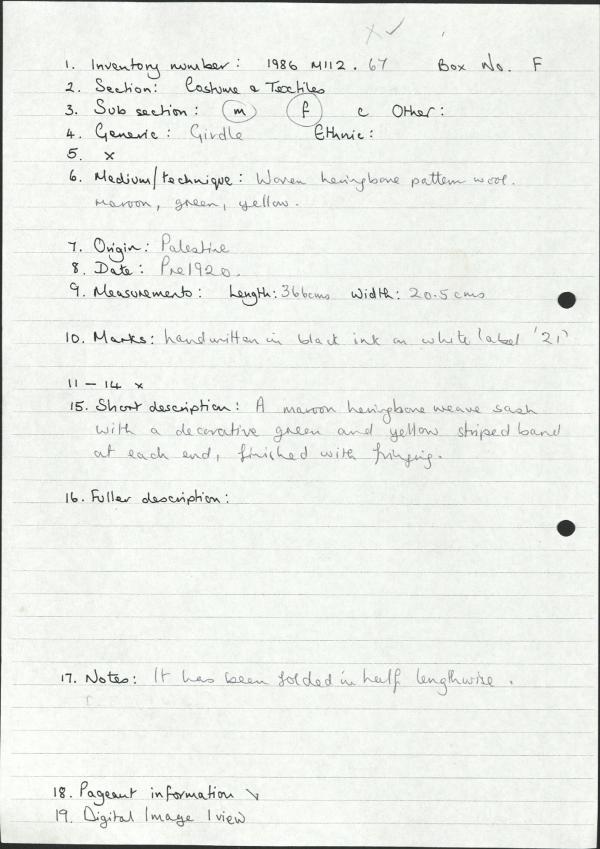 x ✓
1. Inventory number: 1986 M112.67 Box No. F
2. Section: Costume & Textiles
3. Sub section: m f c Other:
4. Generic: Girdle Ethnic:
5. x
6. Medium/technique: Woven heringbone pattern wool.
maroon, green, yellow.
7. Origin: Palestine
8. Date: Pre 1920.
9. Measurements: Length: 366cms Width: 20.5cms
10. Marks: handwritten in black ink on white label '21'
11 - 14 x
15. Short description: A maroon heringbone weave sash
with a decorative green and yellow striped band
at each end, finished with fringing.
16. Fuller description:
17. Notes: It has been folded in half lengthwise.
18. Pageant information
19. Digital Image 1 view